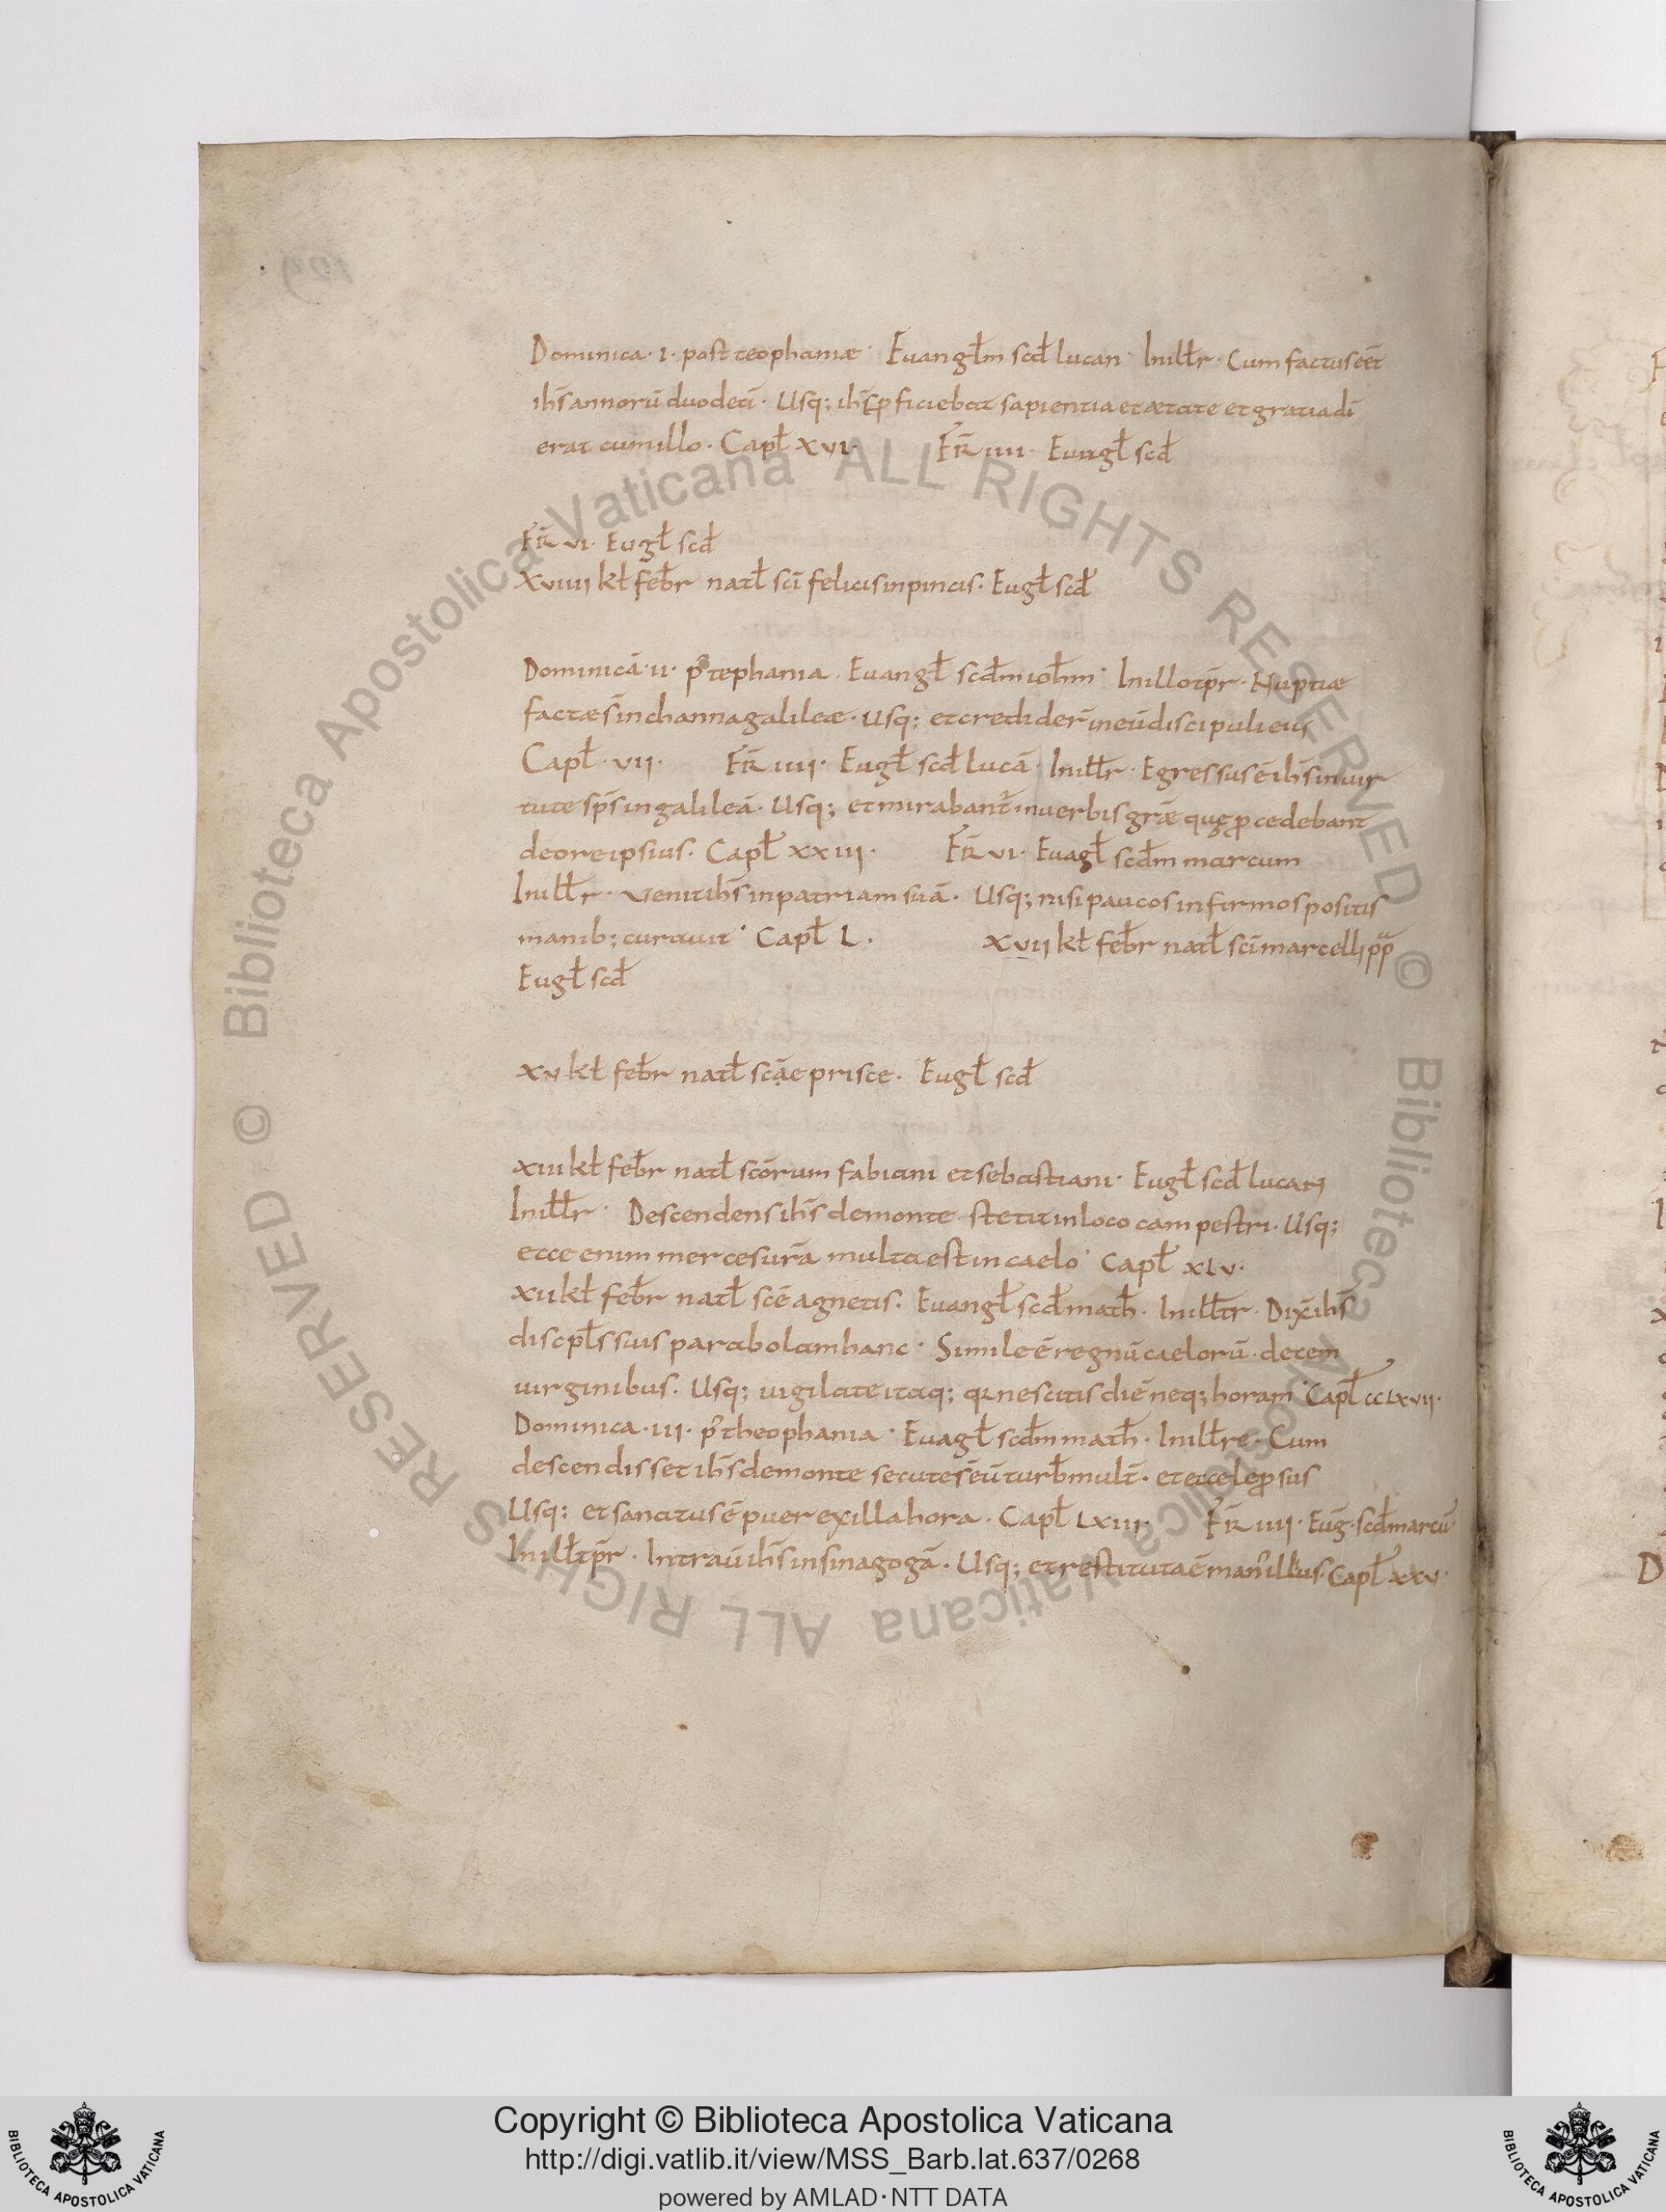 Dominica · I · post teophaniæ · Euangłm scđ lucan · Inillr · Cum factus eet
ihs̄ annorū duodeci · Usq; ihs̄ proficiebat sapientia et ætate et gratia dī
erat cum illo · Capł XVI · FR̄ IIII · Euagł scđ
FR̄ VI · Eugł scđ
XVIIII kł febr natł scī felicis in pincis · Eugł scđ
Dominicā · II · p' tephania · Euangł scđm ioh̄m · Inillo tp̄r · Nuptiæ
factæ s̄ in channa galileæ · Usq; et credider̄ in eū discipuli eius
Capł · VII · FR̄ IIII · Eugł scđ lucā · Inillr · Egressus ē ihs̄ in uir
tute sp̄s in galileā · Usq; et mirabant̄ in uerbis grāe quę procedebant
de ore ipsius · Capł XXIII · FR̄ VI · Euagł scđm marcum
Inillr · Venit ihs̄ in patriam suā · Usq; nisi paucos infirmos positis
manib; curauit · Capł L · XVII kł febr natł scī marcelli pp
Eugł scđ
XV kł febr natł scāe prisce · Eugł scđ
XIII kł febr natł scōrum fabiani et sebastiani · Eugł scđ lucan
Inillr · Descendens ihs̄ de monte stetit in loco campestri · Usq;
ecce enim merces ur̄a multa est in caelo · Capł XLV ·
XII kł febr natł scē agnetis · Euangł scđ math̄ · Inilltr · Dix̄ ihs̄
discipłs suis parabolam hanc · Simile ē regnū caelorū · decem
uirginibus · Usq; uigilate itaq; qr nescitis diē neq; horam · Capł CCLXVII ·
Dominica · III · p' theophania · Euagł scđm math̄ · Inillre · Cum
descendisset ihs̄ de monte secute s̄ eū turb̄ mult̄ · et ecce leprosus
Usq; et sanatus ē puer ex illa hora · Capł LXIII · FR̄ IIII · Eug̅ · scđ marcū
Inilltp̄r · Intrau̅ ihs̄ in sinagogā · Usq; et restituta ē man' illius · Capł XXV ·
Copyright © Biblioteca Apostolica Vaticana
http://digi.vatlib.it/view/MSS_Barb.lat.637/0268
powered by AMLAD·NTT DATA
Biblioteca Apostolica Vaticana ALL RIGHTS RESERVED ©
Biblioteca Apostolica Vaticana ALL RIGHTS RESERVED ©
BIBLIOTECA APOSTOLICA VATICANA
BIBLIOTECA APOSTOLICA VATICANA